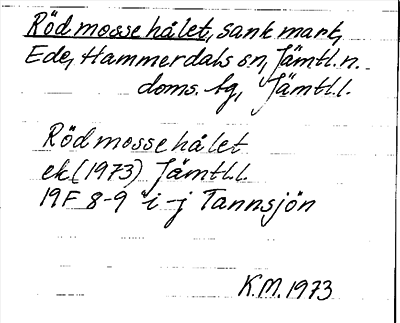 Rödmossehålet, sank mark,
Ede, Hammerdals sn, Jämtl. n.
doms. tg, Jämtl. l.
Rödmossehålet
ek (1973) Jämtl. l.
19F 8-9 i-j Tannsjön
K.M. 1973